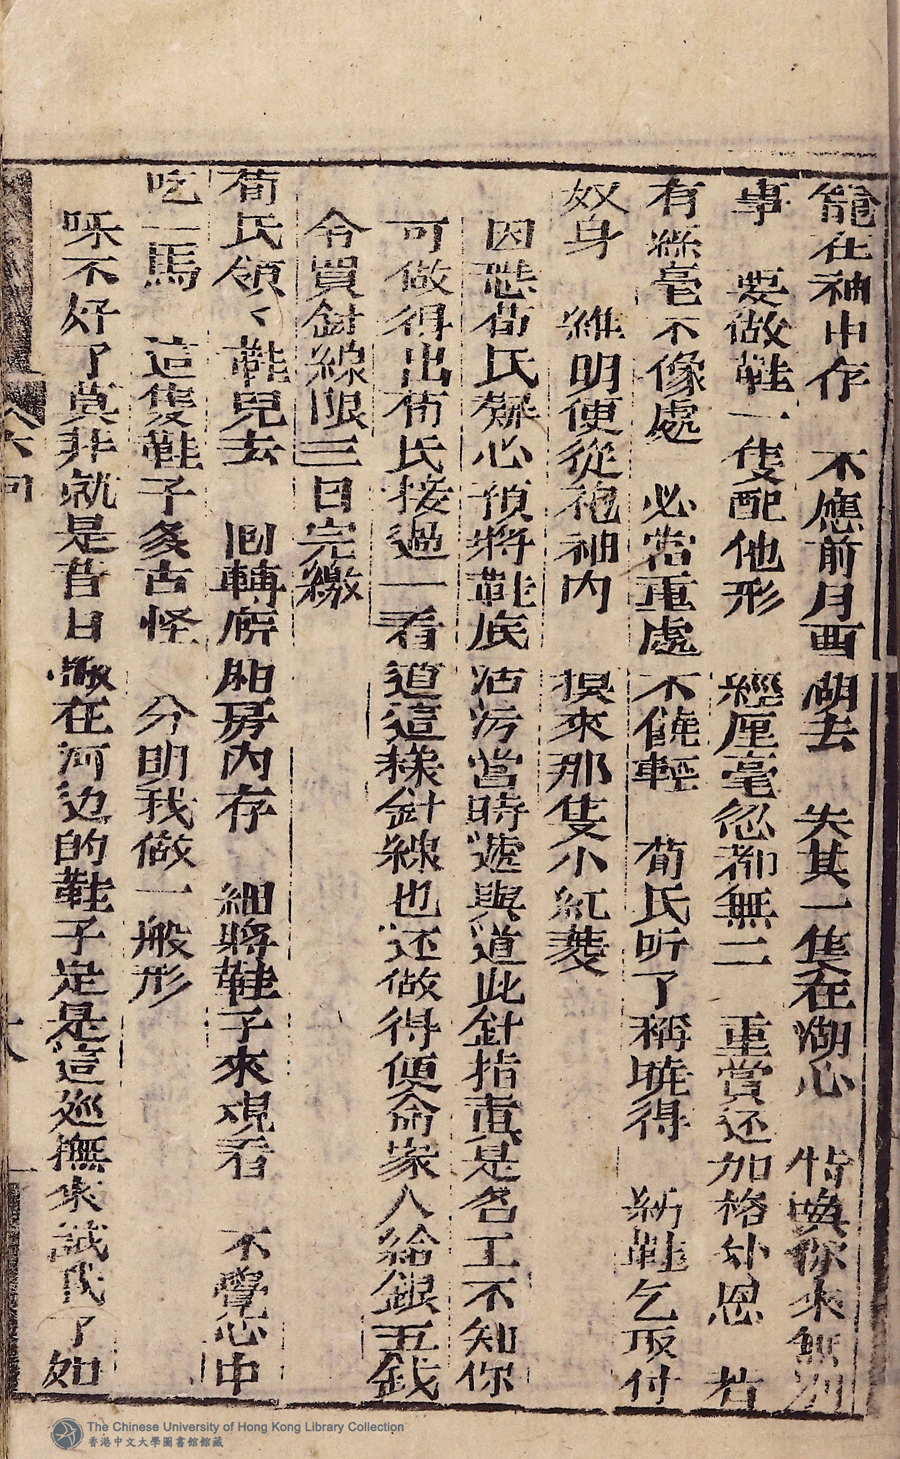 籠在袖中存　不應前月西湖去　失其一隻在湖心　特喚你來無別
事　要做鞋一隻配他形　經厘毫忽都無二　重賞还加格外恩　若
有絲毫不像處　必當重處不饒輕　荀氏听了稱曉得　新鞋乞取付
奴身　維明便從袍袖内　摸來那隻小紅菱
因恐荀氏疑心預將鞋底沾污當時遞與道此針指真是名工不知你
可做得出荀氏接過一看道這樣針線也还做得便命家人給銀五錢
令買針線限三日完繳
荀氏領了鞋兒去　囬轉廂房内存　細將鞋子來覌看　不覺心中
吃一馬　這隻鞋子多古怪　分明我做一般形
呀不好了莫非就是昔日撇在河边的鞋子定是這廵撫來試氏了如
六囬
十八
The Chinese University of Hong Kong Library Collection
香港中文大學圖書館館藏